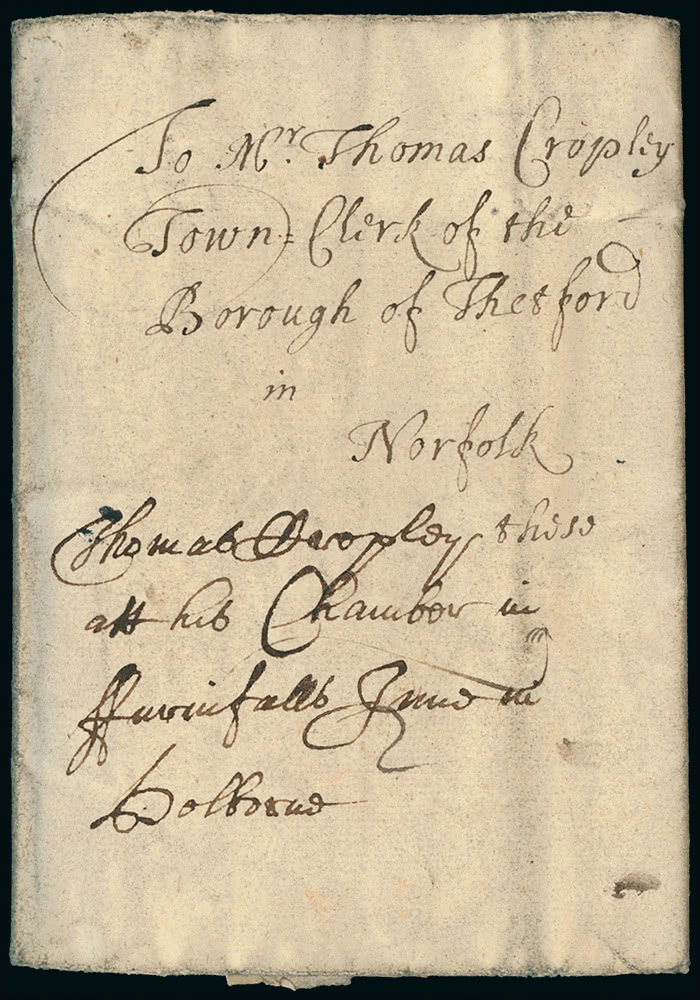 To Mr. Thomas Cropley
Town= Clerk of the
Borough of Thetford
in
Norfolk
Thomas Cropley these
att his Chamber in
ffurnifalls Inne in
Holborne